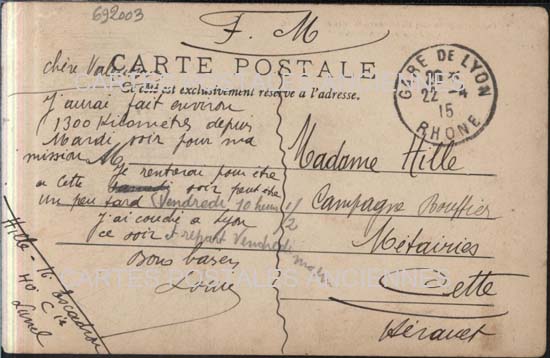 692003
F. M
CARTE POSTALE
Ce côté est exclusivement réservé à l'adresse.
GARE DE LYON
22 - 4
15
RHONE
chère
J'aurai fait environ
1300 Kilometres depuis
Mardi soir pour ma
mission
Je rentrerai peut être
a Cette soir peut être
un peu tard Vendredi 10 heures 1/2
J'ai couché a Lyon
ce soir et repart Vendredi
matin
Bons baisers
Hille - 11 Escadron
40 Cie
Lunel
Madame Hille
Campagne Bouffier
Métairies
Cette
Hérault
CARTES POSTALES ANCIENNES
CARTES POSTALES ANCIENNES